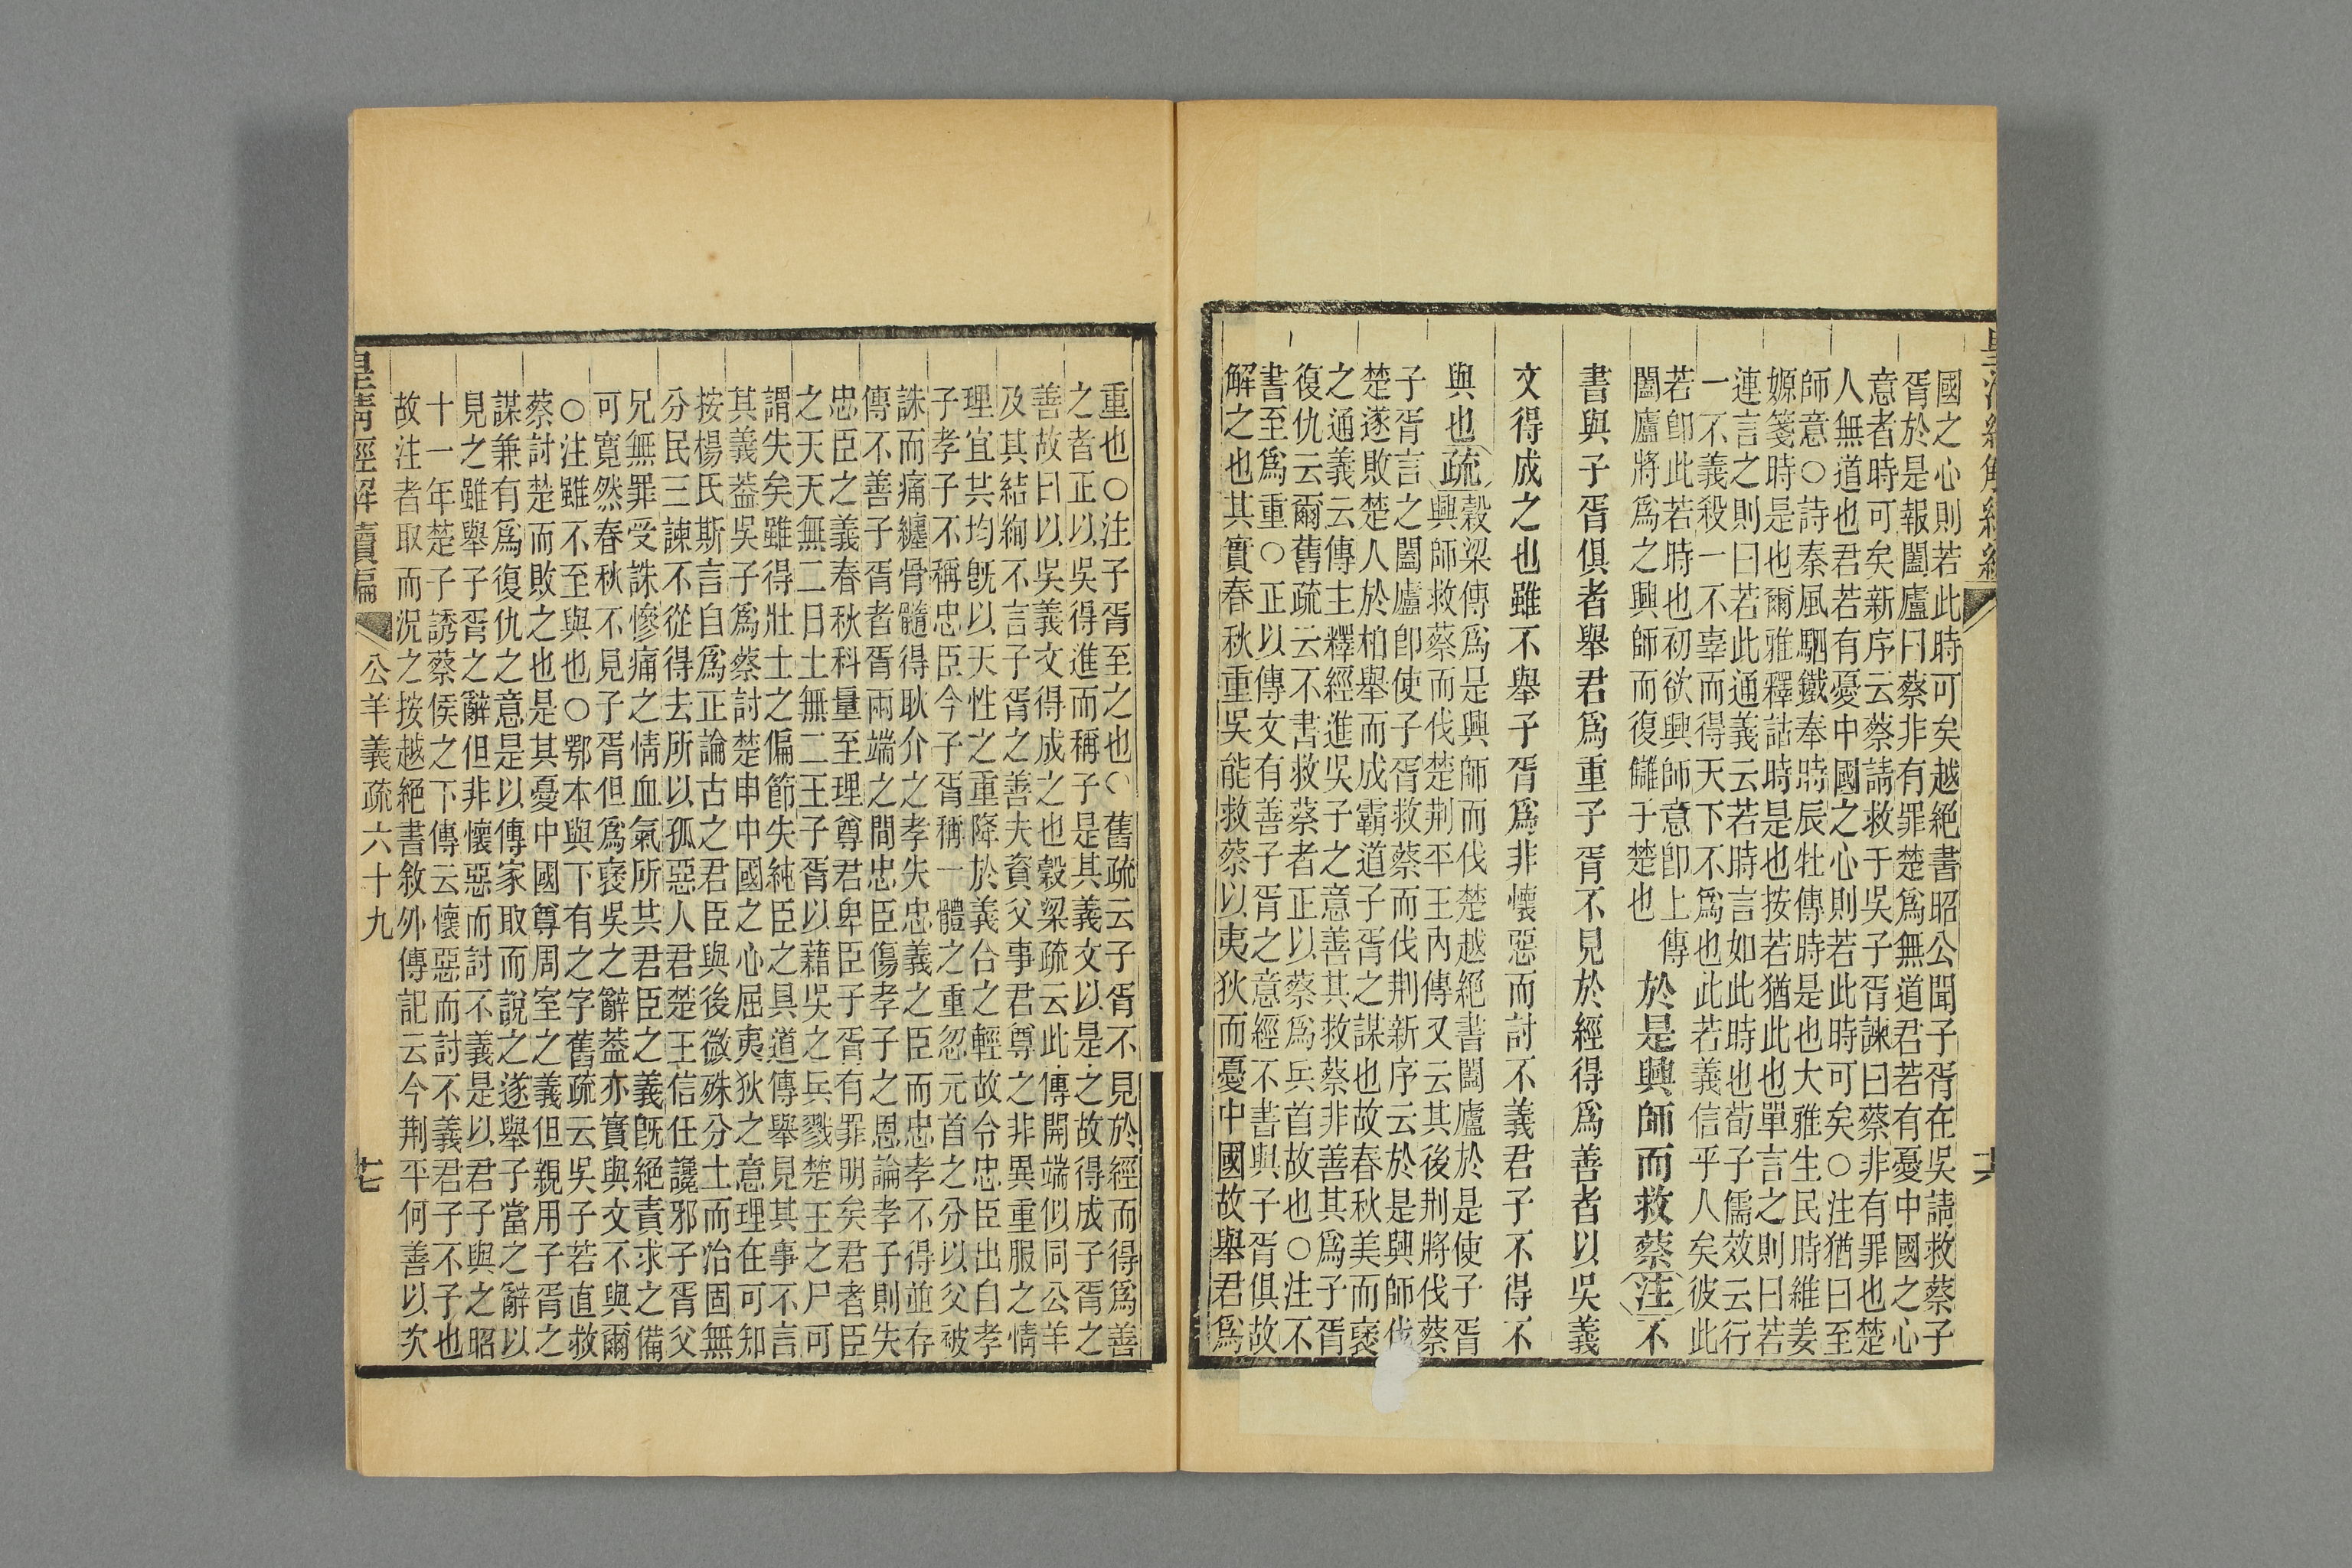 皇清經解續編 十六
國之心則若此時可矣越絕書昭公聞子胥在吳請救蔡子
胥於是報闔廬曰蔡非有罪楚爲無道君若有憂中國之心
意者時可矣新序云蔡請救于吳子胥諫曰蔡非有罪也楚
人無道也君若有憂中國之心則若此時可矣○注猶曰至
師意○詩秦風駟鐵奉時辰牡傳時是也大雅生民時維姜
嫄箋時是也爾雅釋詁時是也按若猶此也單言之則曰若
連言之則曰若此通義云若時言如此時也荀子儒效云行
一不義殺一不辜而得天下不爲也此若義信乎人矣彼此
若卽此若時也初欲興師意卽上傳
闔廬將爲之興師而復讎于楚也
於是興師而救蔡注不
書與子胥俱者舉君爲重子胥不見於經得爲善者以吳義
文得成之也雖不舉子胥爲非懷惡而討不義君子不得不
與也疏
穀梁傳爲是興師而伐楚越絕書闔廬於是使子胥
興師救蔡而伐楚荆平王內傳又云其後荆將伐蔡
子胥言之闔廬卽使子胥救蔡而伐荆新序云於是興師伐
楚遂敗楚人於柏舉而成霸道子胥之謀也故春秋美而襃
之通義云傳主釋經進吳子之意善其救蔡非善其爲子胥
復仇云爾舊疏云不書救蔡者正以蔡爲兵首故也○注不
書至爲重○正以傳文有善子胥之意經不書與子胥俱故
解之也其實春秋重吳能救蔡以夷狄而憂中國故舉君爲
重也○注子胥至之也○舊疏云子胥不見於經而得爲善
之者正以吳得進而稱子是其義文以是之故得成子胥之
善故曰以吳義文得成之也穀梁疏云此傳開端似同公羊
及其結絇不言子胥之善夫資父事君尊之非異重服之情
理宜共均旣以天性之重降於義合之輕故令忠臣出自孝
子孝子不稱忠臣今子胥稱一體之重忽元首之分以父被
誅而痛纏骨髓得耿介之孝失忠義之臣而忠孝不得並存
傳不善子胥者胥兩端之間忠臣傷孝子之恩論孝子則失
忠臣之義春秋科量至理尊君卑臣子胥有罪明矣君者臣
之天天無二日土無二王子胥以藉吳之兵戮楚王之尸可
謂失矣雖得壯士之偏節失純臣之具道傳舉見其事不言
其義葢吳子爲蔡討楚申中國之心屈夷狄之意理在可知
按楊氏斯言自爲正論古之君臣與後微殊分土而治固無
分民三諫不從得去所以孤惡人君楚王信任讒邪子胥父
兄無罪受誅慘痛之情血氣所共君臣之義旣絕責求之備
可寬然春秋不見子胥但爲襃吳之辭葢亦實與文不與爾
○注雖不至與也○鄂本與下有之字舊疏云吳子若直救
蔡討楚而敗之也是其憂中國尊周室之義但親用子胥之
謀兼有爲復仇之意是以傳家取而說之遂舉子當之辭以
見之雖舉子胥之辭但非懷惡而討不義是以君子與之昭
十一年楚子誘蔡侯之下傳云懷惡而討不義君子不予也
故注者取而況之按越絕書敘外傳記云今荆平何善以次
皇清經解續編 公羊義疏六十九 十七